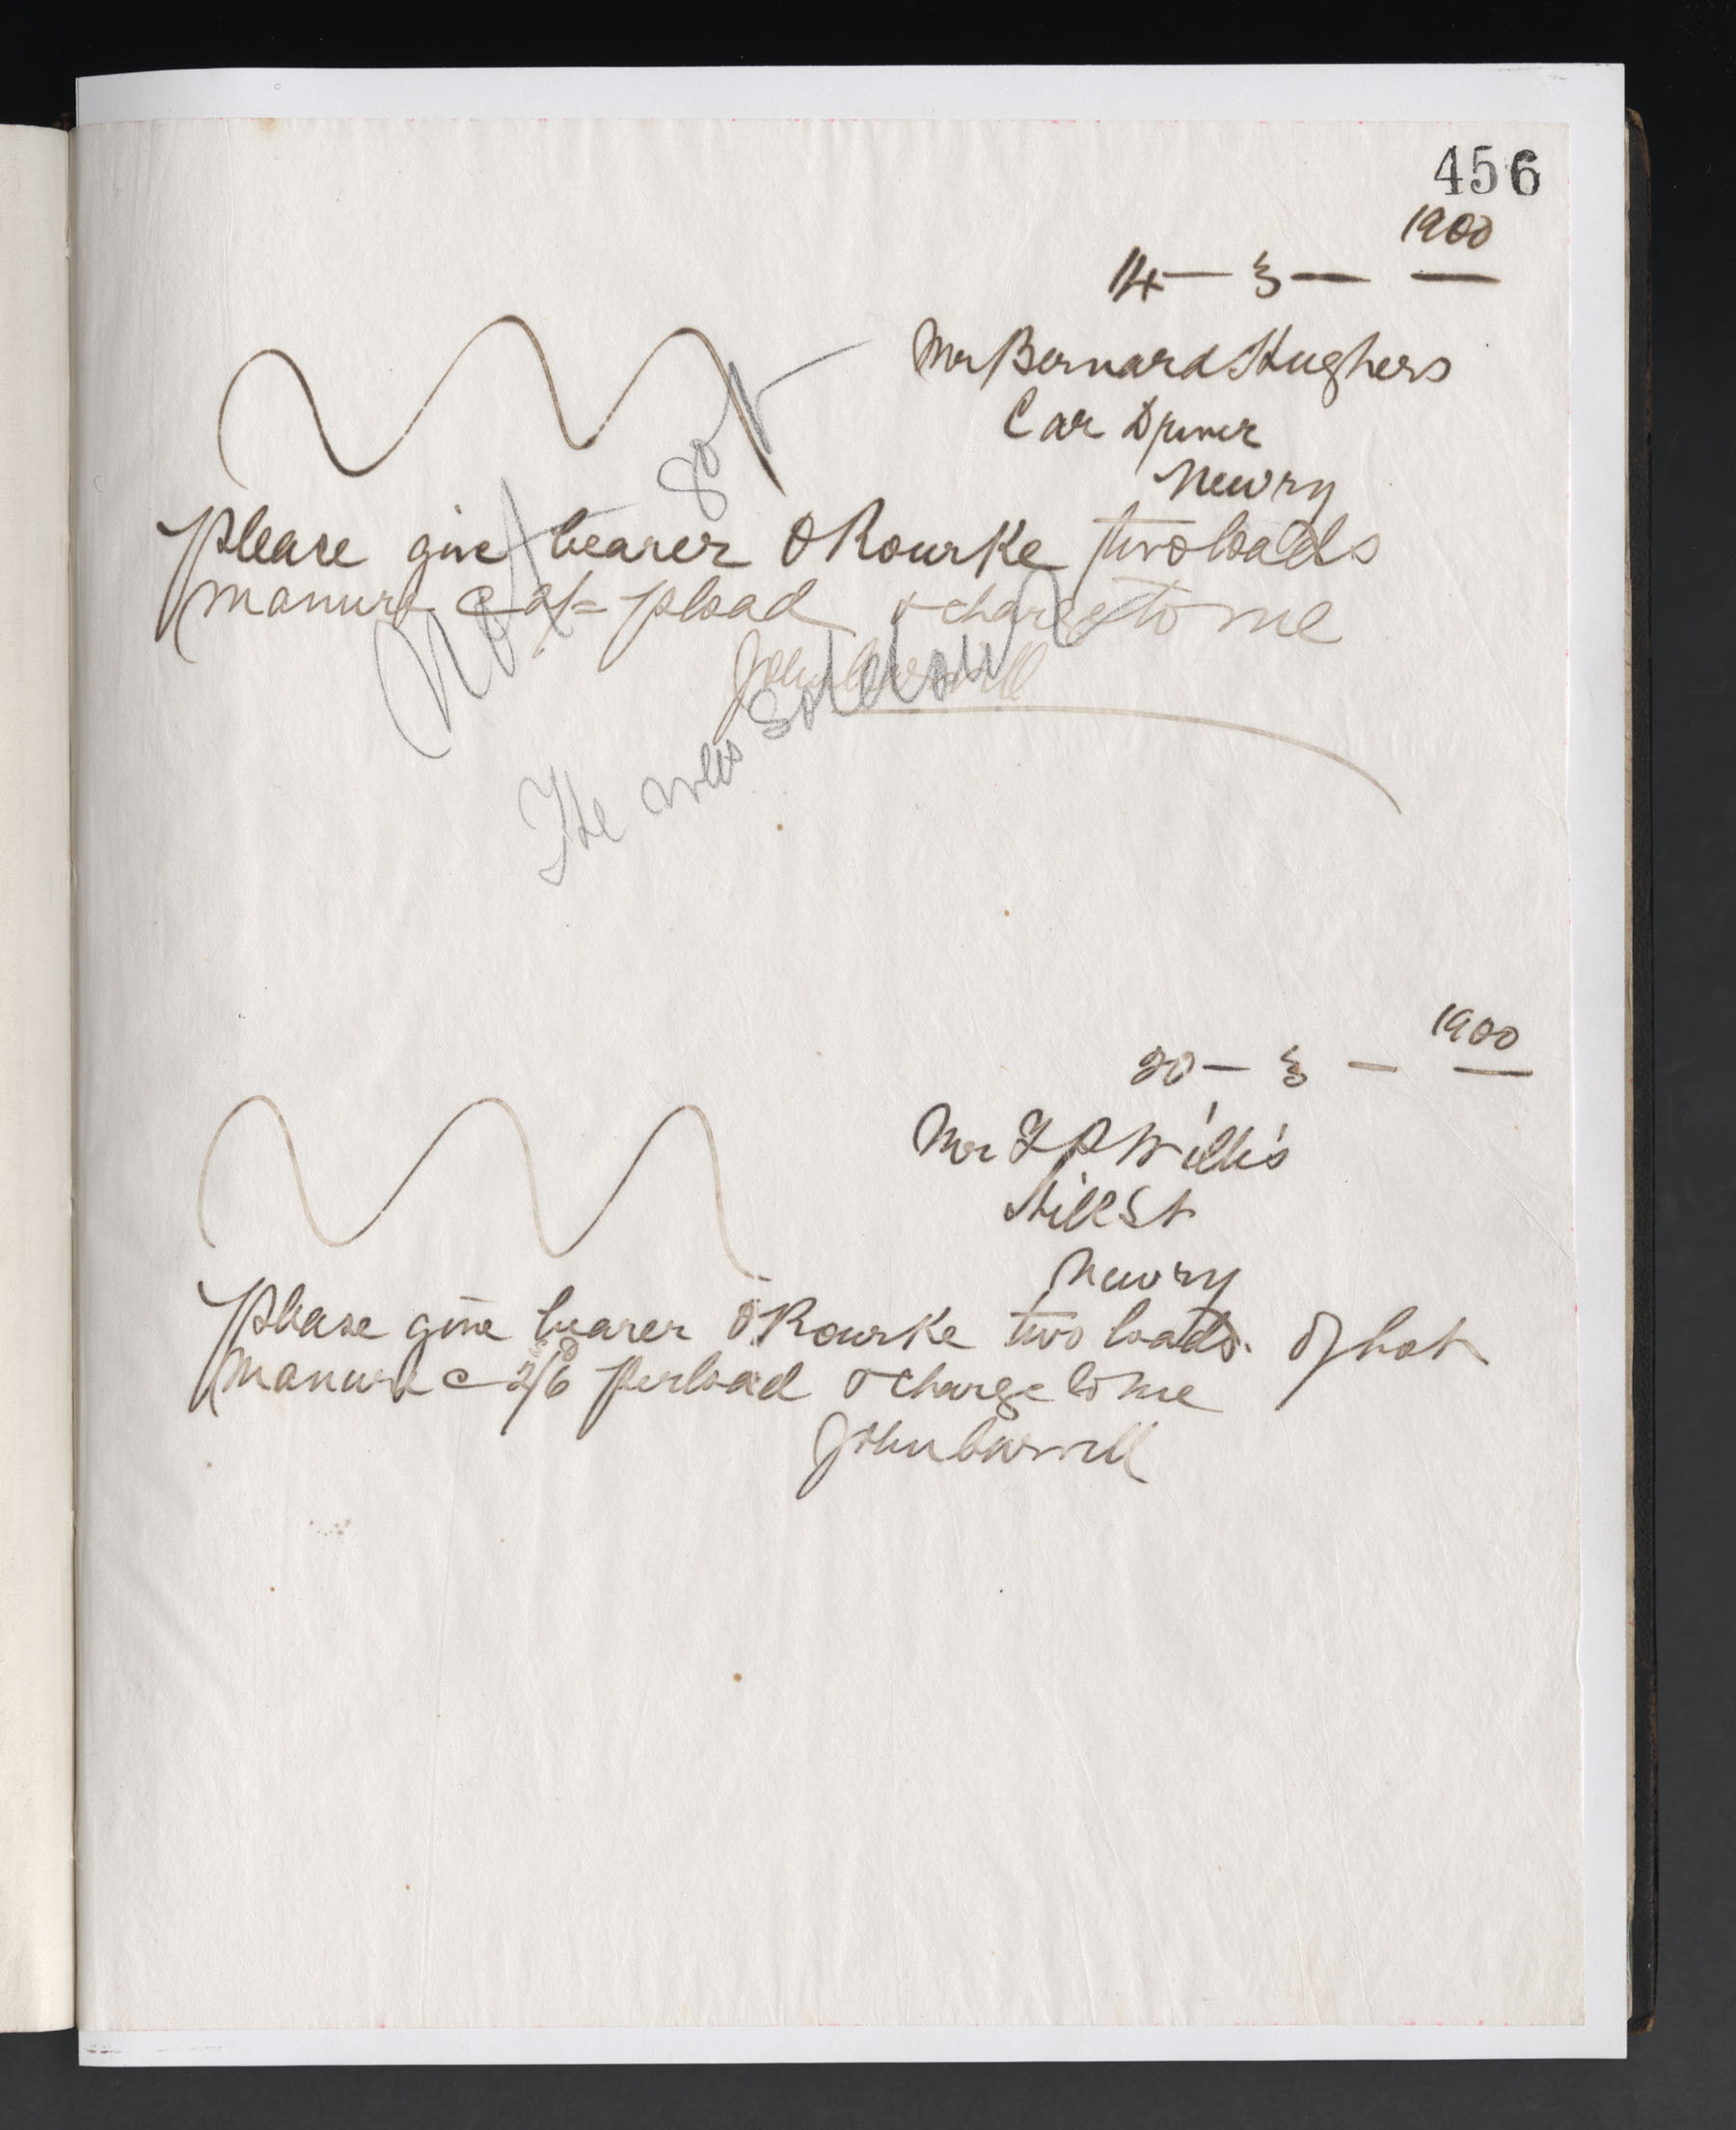 456
1900
14 — 3 —
Mr Bernard Hughers
Car Driver
Newry
please give bearer O Rourke two loads
manure @ 2/= pload & charge to me
John
Not got
He was sold out
1900
20 — 3 —
Mr F P Willis
Hill St
Newry
Please give bearer O'Rourke two loads of hot
manure @ 2/6 per load & charge to me
John